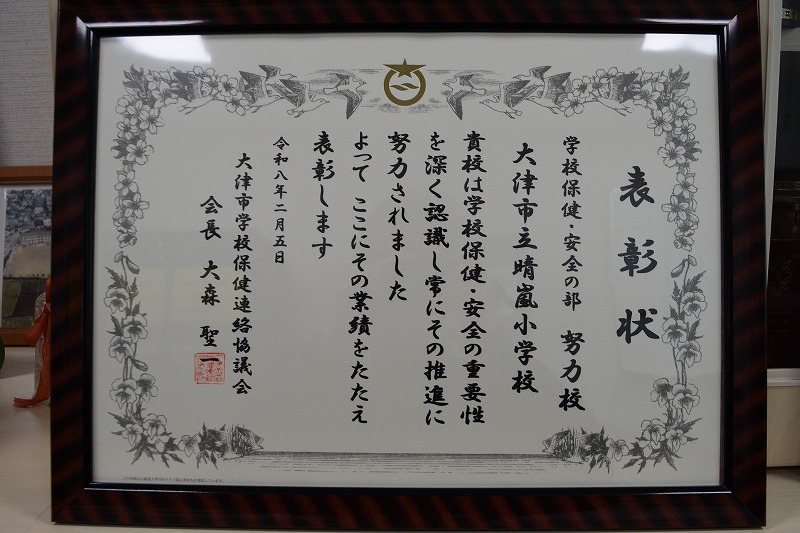 表彰状
学校保健・安全の部 努力校
大津市立晴嵐小学校
貴校は学校保健・安全の重要性
を深く認識し常にその推進に
努力されました
よって ここにその業績をたたえ
表彰します
令和八年二月五日
大津市学校保健連絡協議会
会長 大森 聖一